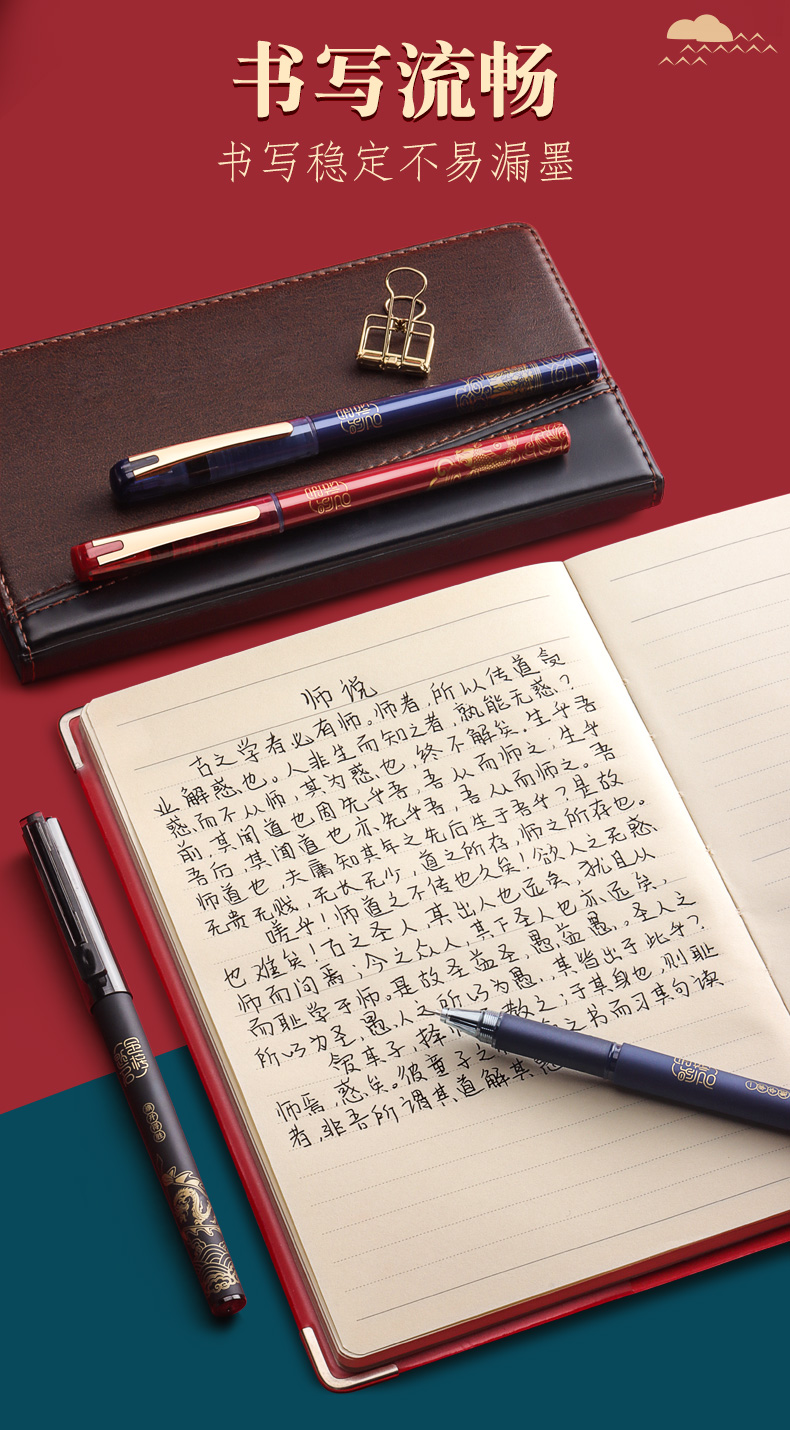 书写流畅
书写稳定不易漏墨
师说
古之学者必有师。师者,所以传道受
业解惑也。人非生而知之者,孰能无惑?
惑而不从师,其为惑也,终不解矣。生乎吾
前,其闻道也固先乎吾,吾从而师之;生乎
吾后,其闻道也亦先乎吾,吾从而师之。吾
师道也,夫庸知其年之先后生于吾乎?是故
无贵无贱,无长无少,道之所存,师之所存也。
嗟乎!师道之不传也久矣!欲人之无惑
也难矣!古之圣人,其出人也远矣,犹且从
师而问焉;今之众人,其下圣人也亦远矣,
而耻学于师。是故圣益圣,愚益愚。圣人之
所以为圣,愚人之所以为愚,其皆出于此乎?
择 教之;于其身也,则耻
师焉,惑矣。彼童子之 之书而习其句读
者,非吾所谓其道解其惑